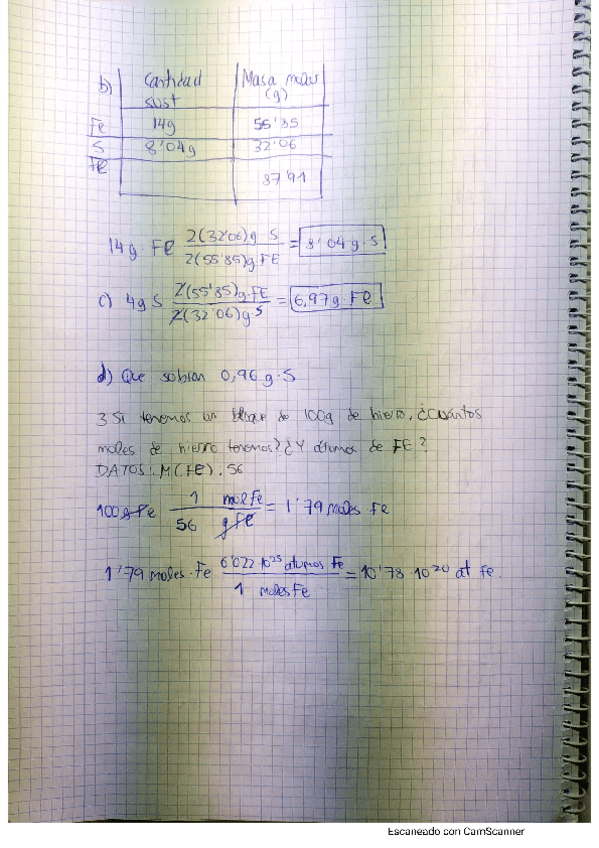 b) Cantidad sust Masa molar (g)
Fe 14g 55'85
S 8'04g 32'06
87'91
14g. Fe 2(32'06)g S / 2(55'85)g FE = 8'04g.S
c) 4g S 2(55'85)g.FE / 2(32'06)g.S = 6,97g Fe
d) Que sobran 0,96 g.S
3 Si tenemos un bloque de 100g de hierro, ¿Cuántos
moles de hierro tenemos? ¿Y átomos de FE?
DATOS: M(FE): 56
100g Fe 1 mol Fe / 56 g Fe = 1'79 moles Fe
1'79 moles. Fe 6'022 10²³ atomos Fe / 1 moles Fe = 10'78 · 10²⁰ at fe.
Escaneado con CamScanner